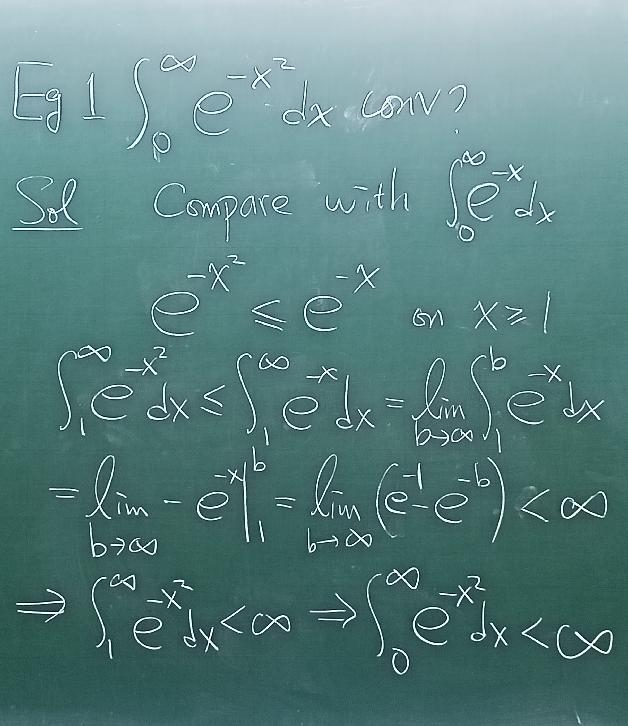 Eg 1 ∫₀^∞ e^{-x²} dx conv?
Sol Compare with ∫₀^∞ e^{-x} dx
e^{-x²} ≤ e^{-x} on x ≥ 1
∫₁^∞ e^{-x²} dx ≤ ∫₁^∞ e^{-x} dx = lim_{b→∞} ∫₁^b e^{-x} dx
= lim_{b→∞} -e^{-x}|₁^b = lim_{b→∞} (e^{-1} - e^{-b}) < ∞
⇒ ∫₁^∞ e^{-x²} dx < ∞ ⇒ ∫₀^∞ e^{-x²} dx < ∞